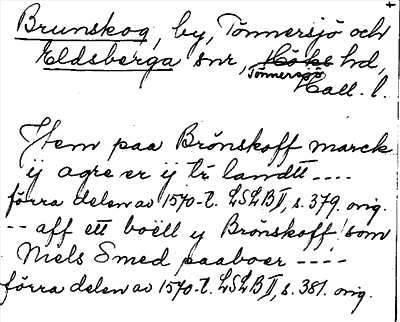 Brunskog, by, Tönnersjö och
Eldsberga snr, Höks hd,
Tönnersjö
Hall. l.
Item paa Brönskoff marck
ij agre er ij tr landtt ----
förra delen av 1570-t. LSLB II, s. 379. orig.
-- aff ett boëll y Brönskoff, som
Niels Smed paaboer ----
förra delen av 1570-t. LSLB II, s. 381. orig.